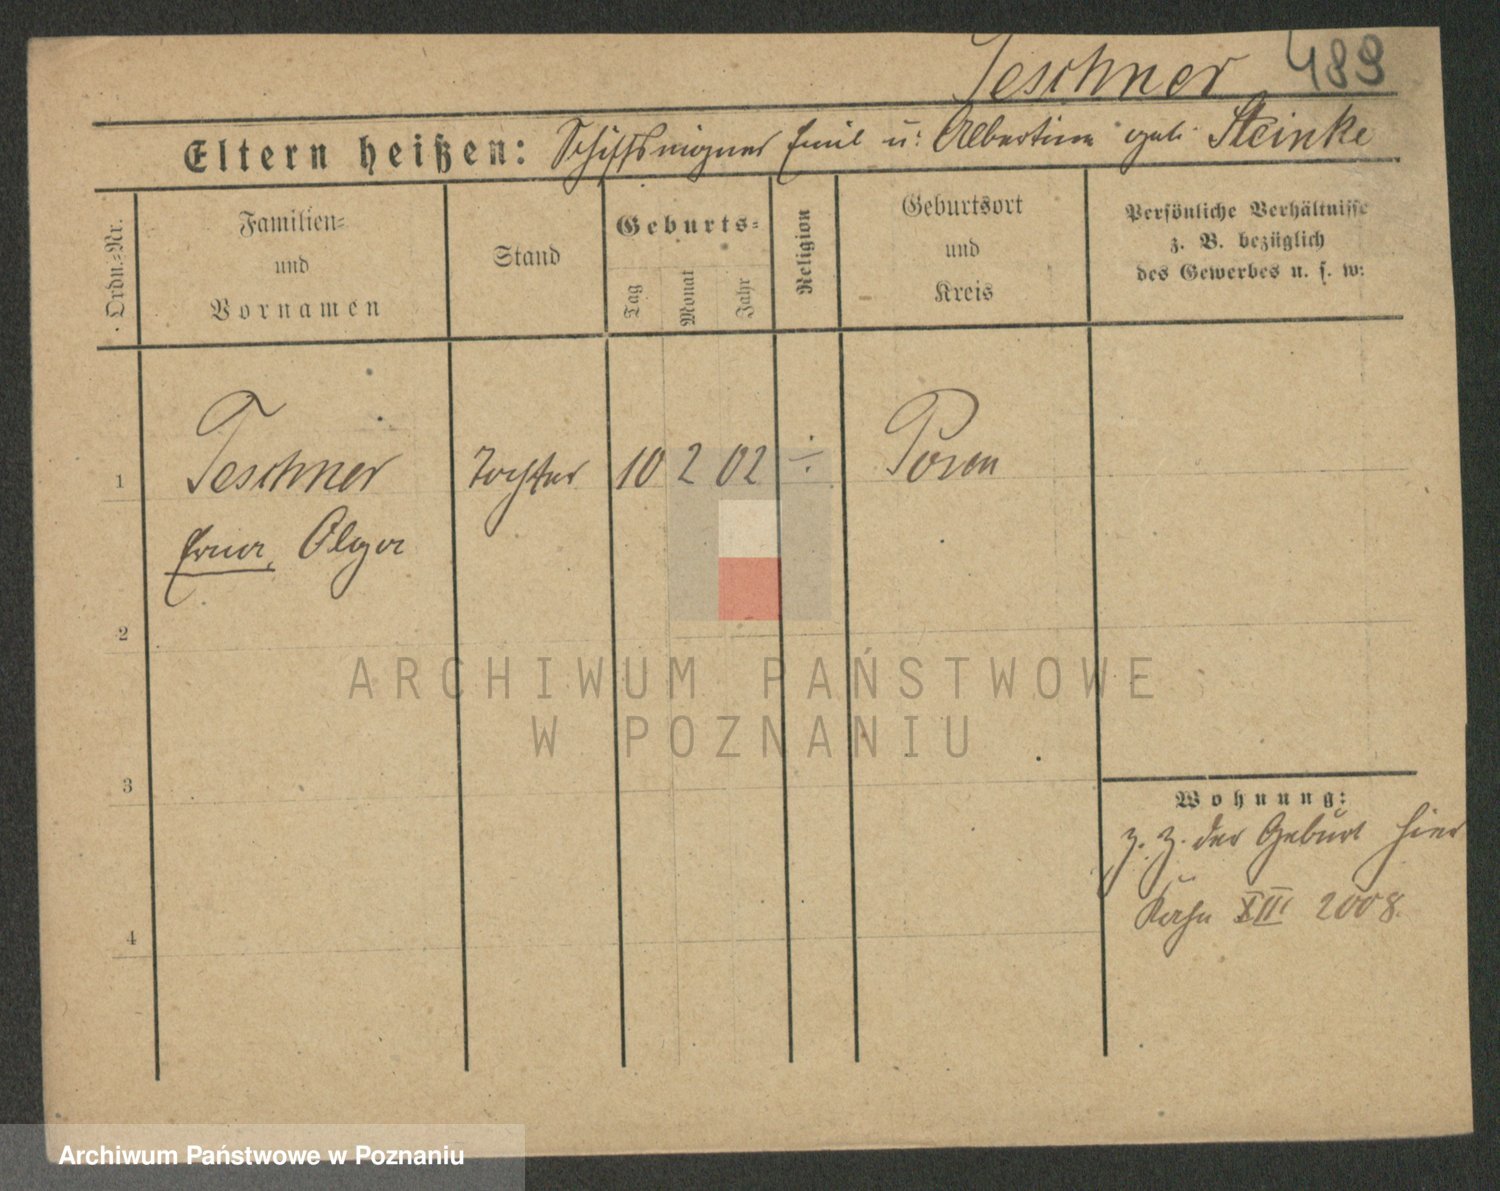 Teschner 489
Eltern heißen: Schiffseigner Emil u: Albertine geb. Steinke
Ordn.=Nr.
Familien=
und
Vornamen
Stand
Geburts=
Tag
Monat
Jahr
Religion
Geburtsort
und
Kreis
Persönliche Verhältnisse
z. B. bezüglich
des Gewerbes u. s. w:
1 Teschner Tochter 10 2 02 ÷ Posen
Erna, Olga
2
3
4
Wohnung:
z. Z. der Geburt hier
Kahn XIII 2008.
ARCHIWUM PAŃSTWOWE
W POZNANIU
Archiwum Państwowe w Poznaniu